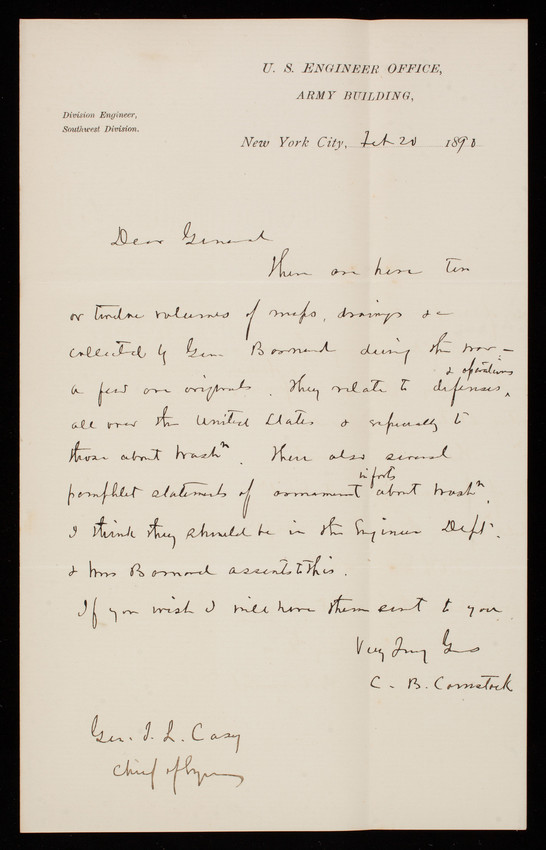 U. S. ENGINEER OFFICE,
ARMY BUILDING,
Division Engineer,
Southwest Division.
New York City, Feb 20 1890
Dear General
There are here ten
or twelve volumes of maps, drawings &c
collected by Gen Barnard during the war –
a few are originals. They relate to defenses & operations,
all over the United States & especially to
those about Washn. There also several
pamphlet statements of armament in forts about Washn.
I think they should be in the Engineer Dept.
& Mrs Barnard assents to this.
If you wish I will have them sent to you
Very Truly Yrs
C. B. Comstock
Gen. T. L. Casey
Chief of Engrs